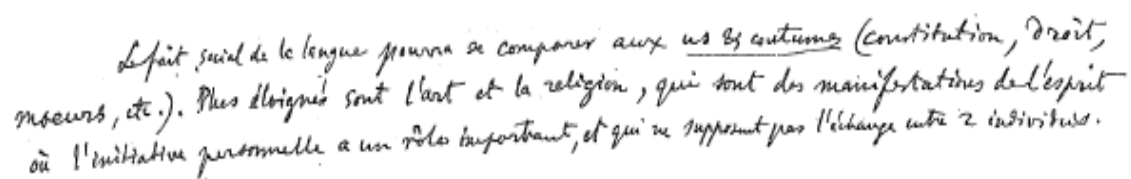 Le fait social de la langue pourra se comparer aux us & coutumes (constitution, droit,
moeurs, etc.). Plus éloignés sont l'art et la religion, qui sont des manifestations de l'esprit
où l'initiative personnelle a un rôle important, et qui ne supposent pas l'échange entre 2 individus.